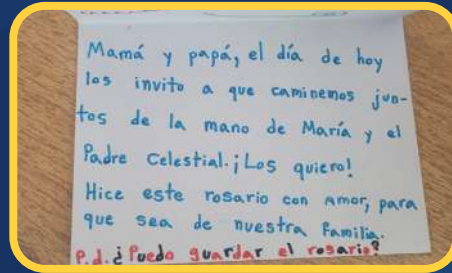 Mamá y papá, el día de hoy
los invito a que caminemos jun-
tos de la mano de María y el
Padre Celestial. ¡Los quiero!
Hice este rosario con amor, para
que sea de nuestra familia.
P.d. ¿Puedo guardar el rosario?